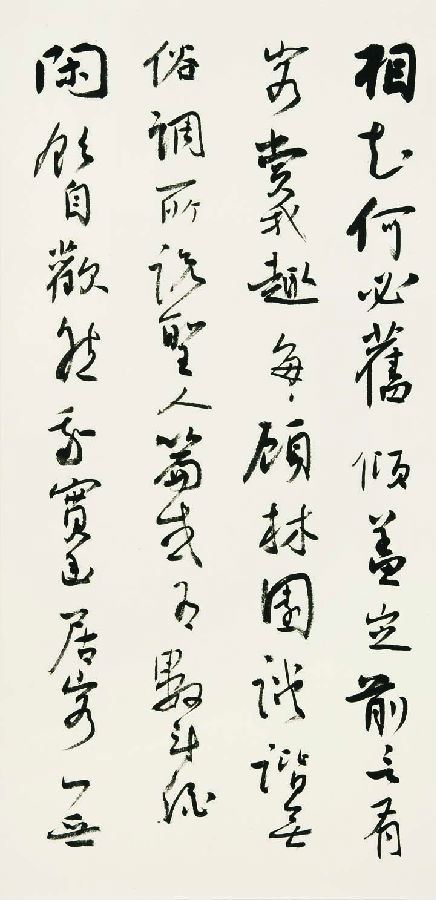 相知何必舊傾蓋定前言有
客賞我趣每々顧林園談諧無
俗調所説聖人篇或有數斗酒
閑飲自歡然我實幽居客無